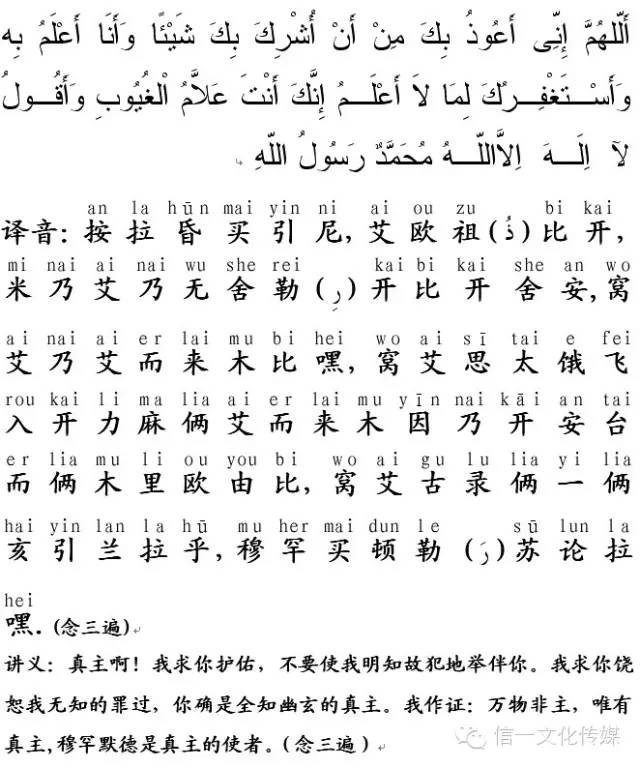 أَللّٰهُمَّ إِنِّى أَعُوذُ بِكَ مِنْ أَنْ أُشْرِكَ بِكَ شَيْئًا وَأَنَا أَعْلَمُ بِهِ
وَأَسْـتَغْفِـرُكَ لِمَا لاَ أَعْلَـمُ إِنَّكَ أَنْتَ عَلاَّمُ الْغُيُوبِ وَأَقُـولُ
لآ اِلَـهَ اِلاَّاللّـهُ مُحَمَّدٌ رَسُولُ اللّهِ
an la hūn mai yin ni ai ou zu bi kai
译音：按拉昏买引尼，艾欧祖(ذُ)比开，
mi nai ai nai wu she rei kai bi kai she an wo
米乃艾乃无舍勒(رِ)开比开舍安，窝
ai nai ai er lai mu bi hei wo ai sī tai e fei
艾乃艾而来木比嘿，窝艾思太饿飞
rou kai li ma lia ai er lai mu yīn nai kāi an tai
入开力麻俩艾而来木因乃开安台
er lia mu li ou you bi wo ai gu lu lia yi lia
而俩木里欧由比，窝艾古录俩一俩
hai yin lan la hū mu her mai dun le sū lun la
亥引兰拉乎，穆罕买顿勒(رَ)苏论拉
hei
嘿．(念三遍)
讲义：真主啊！我求你护佑，不要使我明知故犯地举伴你。我求你饶
恕我无知的罪过，你确是全知幽玄的真主。我作证：万物非主，唯有
真主,穆罕默德是真主的使者。(念三遍)
信一文化传媒